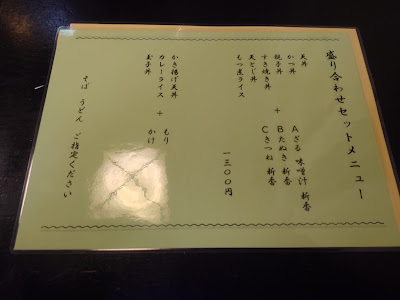 盛り合わせセットメニュー
天丼
かつ丼
親子丼
すき焼き丼
天とじ丼
もつ煮ライス
+
Aざる 味噌汁 新香
Bたぬき 新香
Cきつね 新香
一三〇〇円
かき揚げ天丼
カレーライス
玉子丼
+
もり
かけ
そば うどん ご指定ください